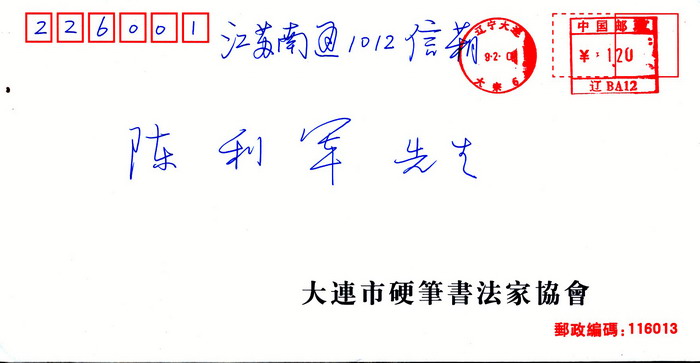 226001
江苏南通1012信箱
辽宁大连
9.2.0
大寨 6
中国邮
¥:120
辽BA12
陈利军先生
大連市硬筆書法家協會
郵政編碼:116013